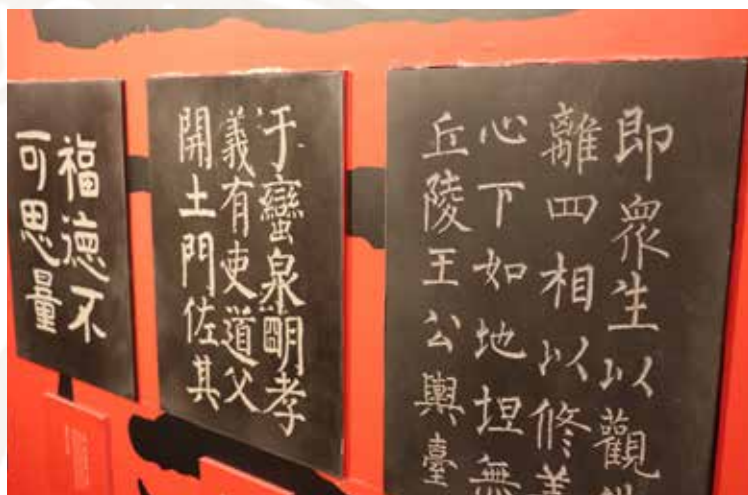 即衆生以觀
離四相以修
心下如地坦無
丘陵王公輿臺
于蠻泉明孝
義有吏道父
開土門佐其
福德不
可思量